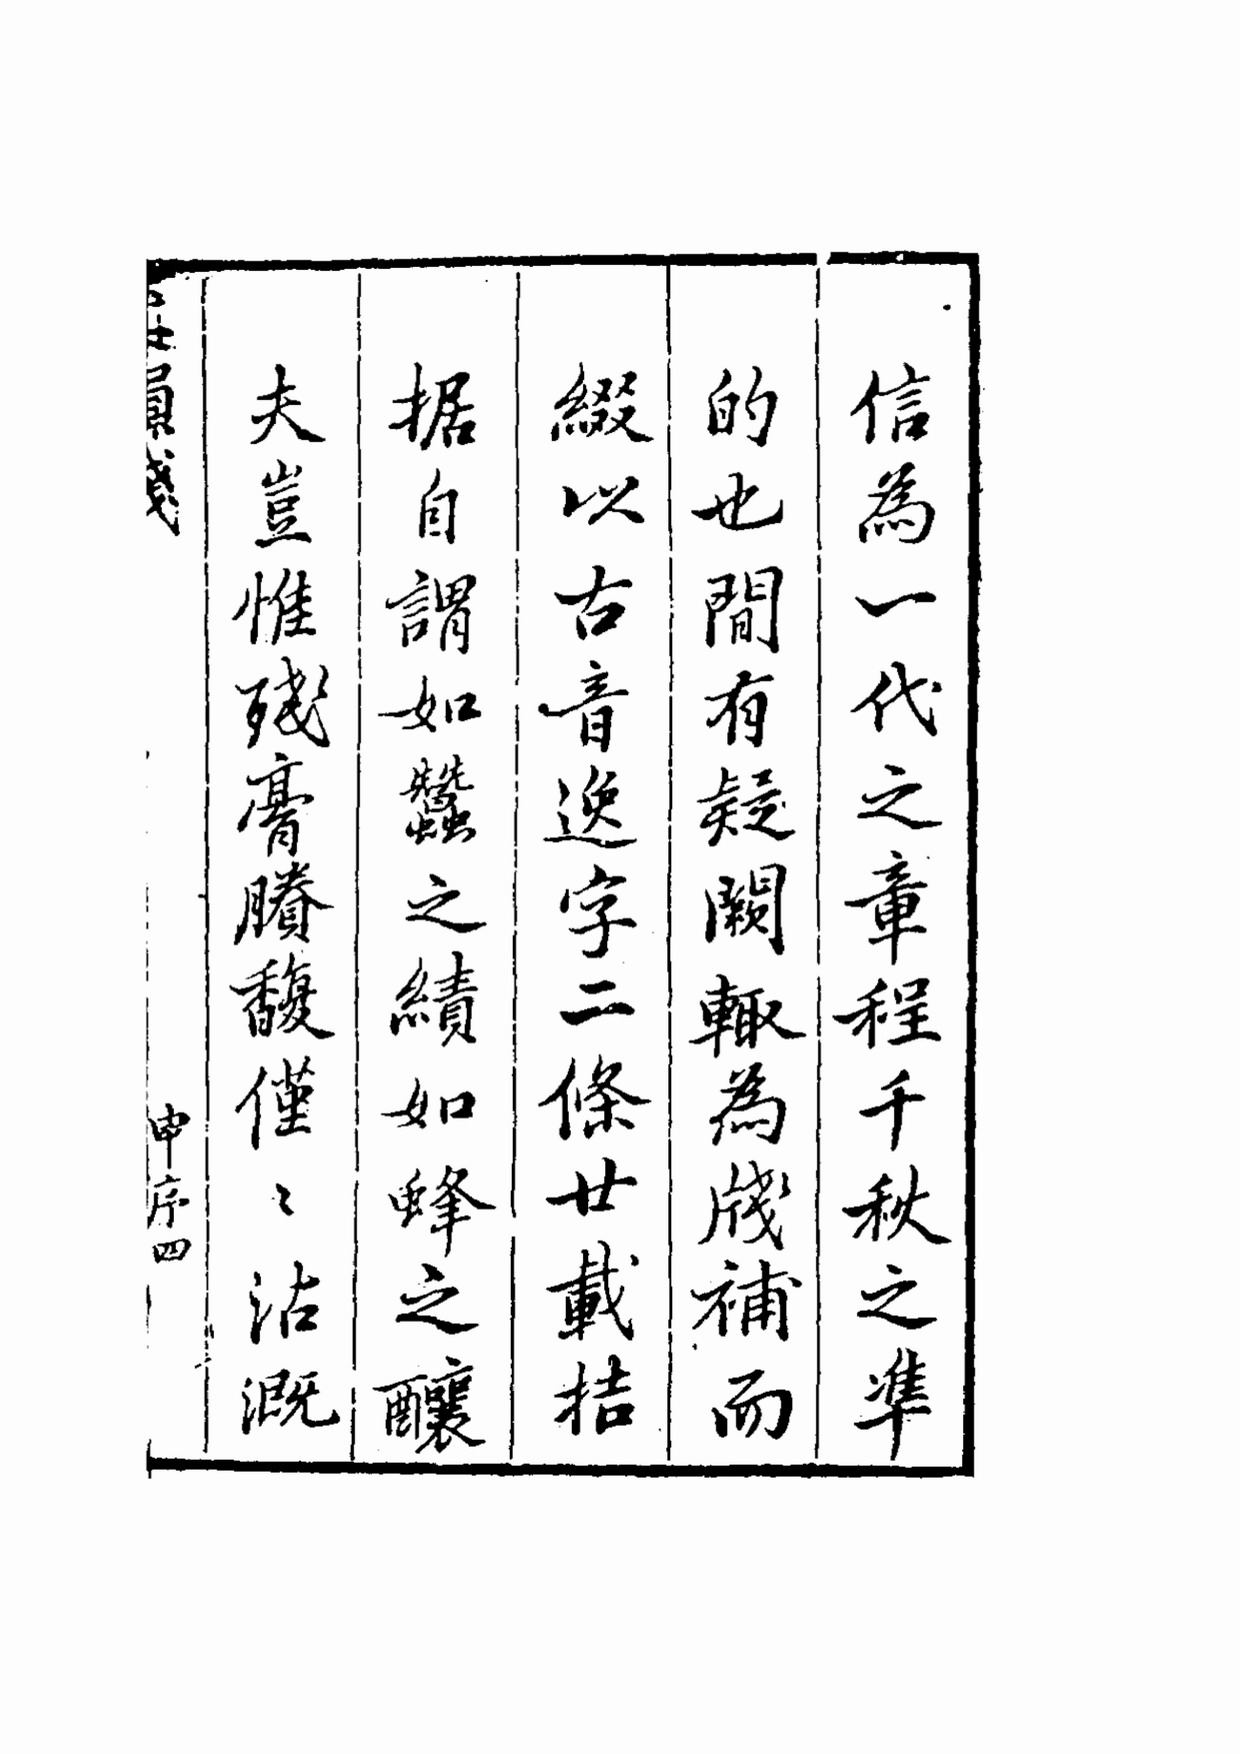 信為一代之章程千秋之準
的也間有疑闕輙為牋補而
綴以古音逸字二條廿載拮
据自謂如蠶之績如蜂之釀
夫豈惟殘膏賸馥僅〻沾溉
韻箋
申序四